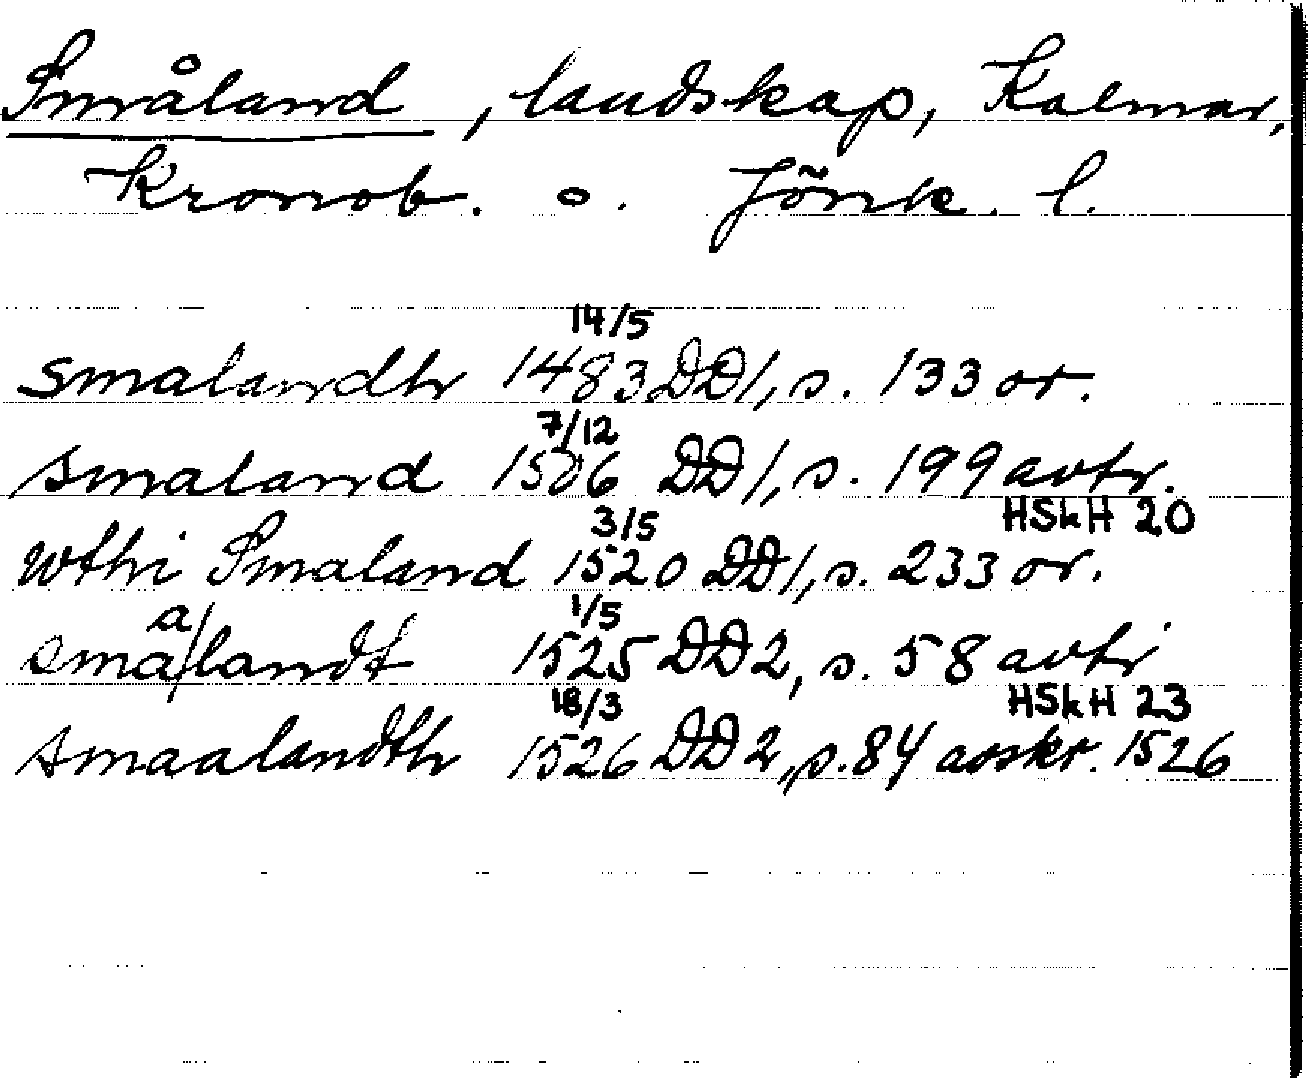 Småland, landskap, Kalmar,
Kronob. o. Jönk. l.
14/5
smalandh 1483 DD1, s. 133 or.
7/12
smaland 1506 DD1, s. 199 avtr.
HSkH 20
3/5
wthi Smaland 1520 DD1, s. 233 or.
a/ 1/5
sma/landt 1525 DD2, s. 58 avtr
18/3 HSkH 23
smaalandth 1526 DD2, s. 84 avskr. 1526